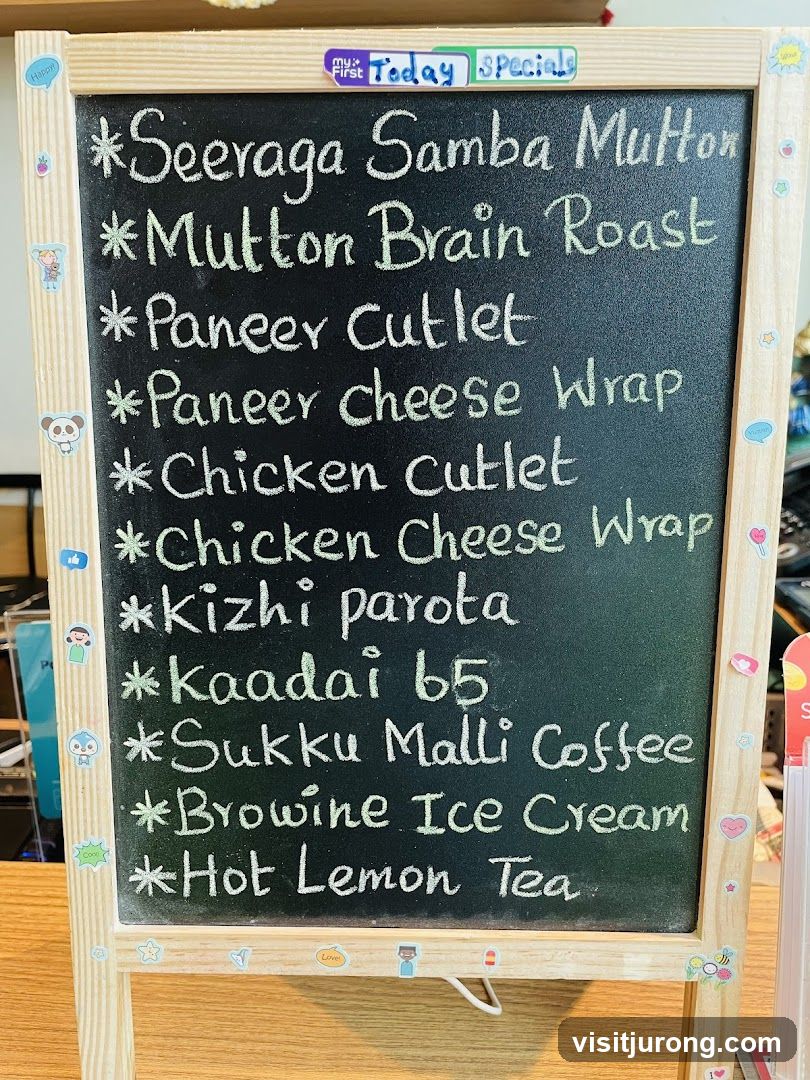 my First Today Specials
Happy!
Wow!
*Seeraga Samba Mutton
*Mutton Brain Roast
*Paneer Cutlet
*Paneer cheese Wrap
*Chicken Cutlet
*Chicken Cheese Wrap
*Kizhi parota
*Kaadai 65
*Sukku Malli Coffee
*Browine Ice Cream
*Hot Lemon Tea
Cool!
Love!
visitjurong.com